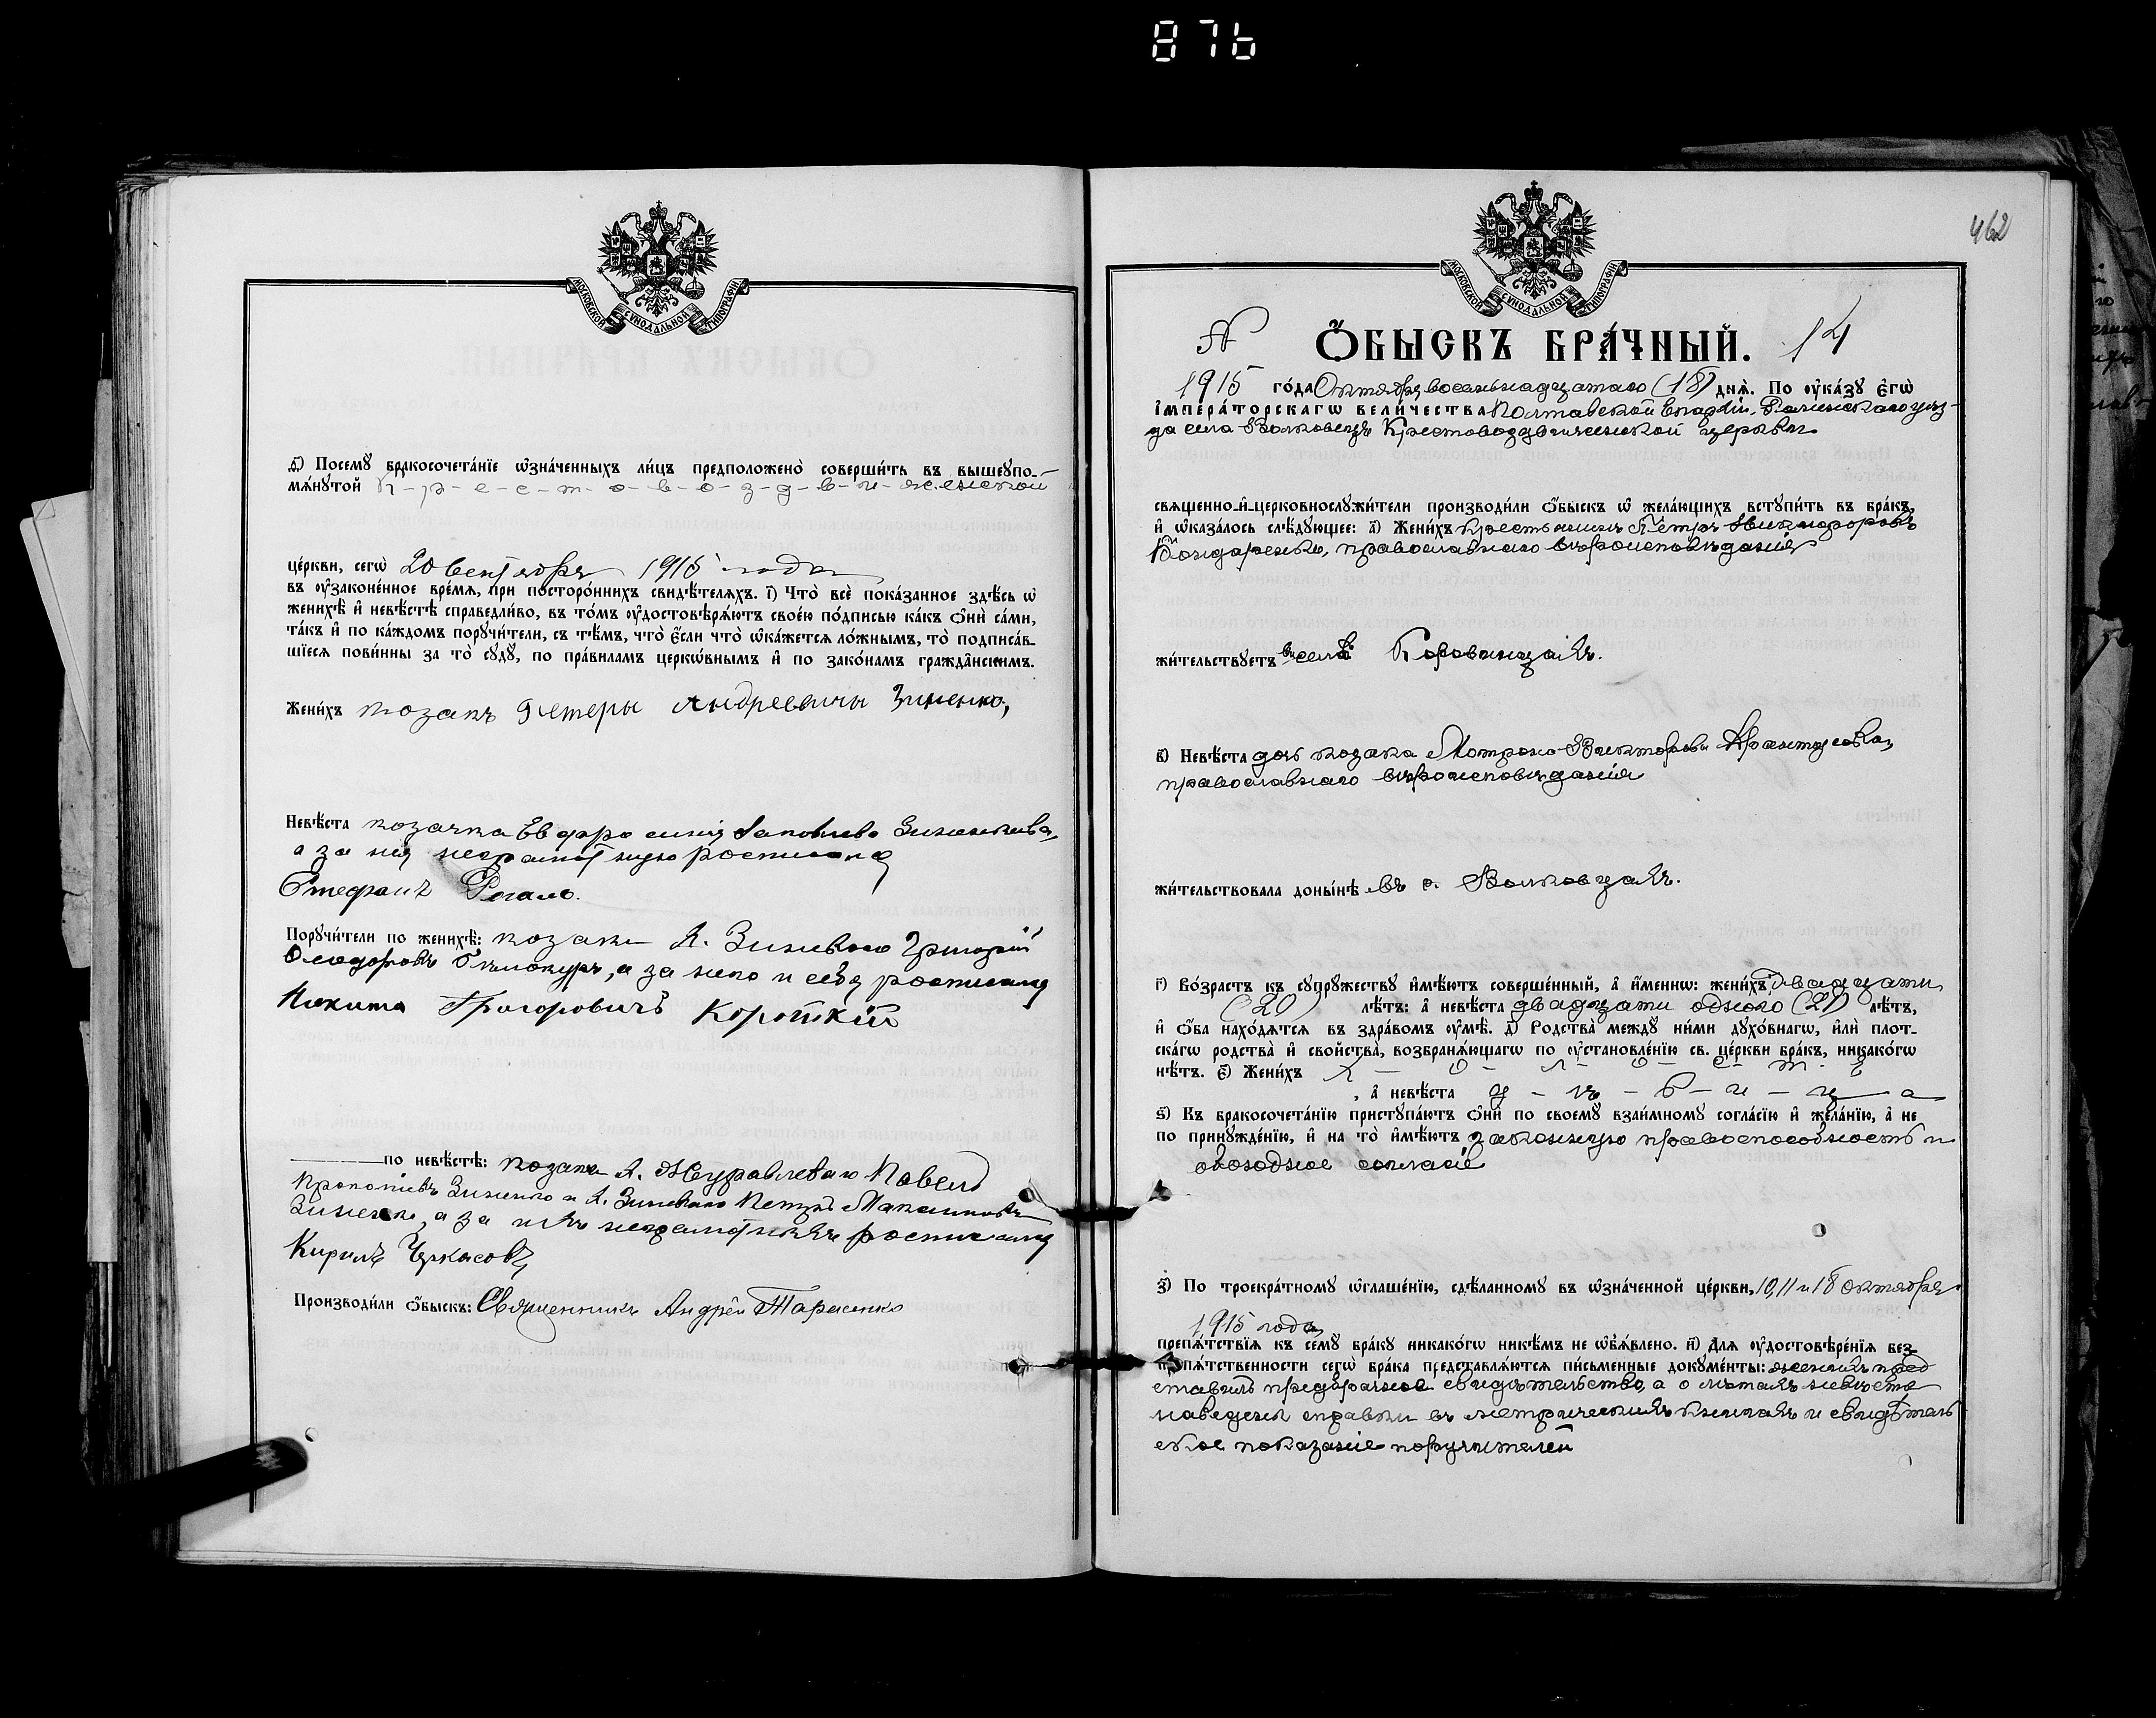 876
МОСКОВСКОЙ СѴНОДАЛЬНОЙ ТИПОГРАФІИ
ѳ҃) Посемꙋ̀ бракосочета́нїе ѡ҆зна́ченныхъ ли́цъ предположено̀ соверши́ть въ вышеꙋпо-
мѧ́нꙋтой К-р-е-с-т-о-в-о-з-д-в-и-женской
це́ркви, сегѡ̀ 20 Сентября 1915 года
въ ᲂу҆законе́нное вре́мѧ, при посторо́ннихъ свидѣ́телѧхъ. і҃) Что̀ всѐ пока́занное здѣ́сь ѡ҆
женихѣ̀ и҆ невѣ́стѣ справедли́во, въ то́мъ ᲂу҆достовѣрѧ́ютъ свое́ю по́дписью ка́къ ѻ҆нѝ са́ми,
та́къ и҆ по ка́ждомъ порꙋчи́тели, съ тѣ́мъ, что̀ є҆́сли что̀ ѡ҆ка́жетсѧ ло́жнымъ, то̀ подписа́в-
шїесѧ пови́нны за то̀ сꙋдꙋ̀, по пра́виламъ церкѡ́внымъ и҆ по зако́намъ гражда̂нскимъ.
Жени́хъ козакъ Андреевичъ Зиненко,
Невѣ́ста козачка Евфросинія Яковлева Зиненкова,
а за ней неграмотную росписался
Стефанъ Рогало.
Порꙋчи́тели по женихѣ̀: козаки х. Зинькова Григорій
Ѳеодоровъ Бѣлокуръ, а за него и себя росписался
Никита Григоровичъ Короткій
по невѣ́стѣ: козаки х. Журавлеваго Павелъ
Прокопіевъ Зиненко и х. Петръ Максимовъ
Зиненко, а за нихъ неграмотныхъ росписался
Кирилъ Черкасовъ
Производи́ли ѻ҆́быскъ: Священникъ Андрей Тарасенко
462
МОСКОВСКОЙ СѴНОДАЛЬНОЙ ТИПОГРАФІИ
№ Ѻ҆́БЫСКЪ БРА́ЧНЫЙ. 14
1915 го́да Октября восемнадцатаго (18) днѧ̀. По ᲂу҆ка́зꙋ є҆гѡ̀
і҆мпера́торскагѡ вели́чества Полтавской Епархіи, Роменскаго уѣз-
да села Волковецъ Крестовоздвиженской церкви
свѧщенно-и҆-церковнослꙋжи́тели производи́ли ѻ҆́быскъ ѡ҆ жела́ющихъ встꙋпи́ть въ бра́къ,
и҆ ѡ҆каза́лось слѣ́дꙋющее: а҃) Жени́хъ крестьянинъ Петръ Никифоровъ
Бондаренко, православнаго вѣроисповѣданія
жи́тельствꙋетъ въ селѣ Коровинцахъ.
в҃) Невѣ́ста дочь козака Мотрона Викторова
православнаго вѣроисповѣданія
жи́тельствовала доны́нѣ въ с. Волковцахъ.
г҃) Во́зрастъ къ сꙋпрꙋ́жествꙋ и҆мѣ́ютъ соверше́нный, а҆ и҆́меннѡ: жени́хъ двадцати
(20) лѣ́тъ: а҆ невѣ́ста двадцати одного (21) лѣ́тъ,
и҆ ѻ҆́ба нахо́дѧтсѧ въ здра́вомъ ᲂу҆мѣ̀. д҃) Родства̀ междꙋ̀ ни́ми дꙋхо́внагѡ, и҆лѝ плот-
ска́гѡ родства̀ и҆ сво́йства, возбранѧ́ющагѡ по ᲂу҆становле́нїю св. це́ркви бра́къ, никако́гѡ
нѣ́тъ. є҃) Жени́хъ х-о-л-о-с-т-ъ
, а҆ невѣ́ста д-ѣ-в-и-ц-а
ѕ҃) Къ бракосочета́нїю пристꙋпа́ютъ ѻ҆нѝ по своемꙋ̀ взаи́мномꙋ согла́сїю и҆ жела́нїю, а҆ не
по принꙋжде́нїю, и҆ на то̀ и҆мѣ́ютъ законную правоспособность и
свободное согласіе
з҃) По троекра́тномꙋ ѡ҆глаше́нїю, сдѣ́ланномꙋ въ ѡ҆зна́ченной це́ркви, 10, 11 и 18 октября
1915 года
препѧ́тствїѧ къ семꙋ̀ бра́кꙋ никако́гѡ никѣ́мъ не ѡ҆б̾ѧ́влено. и҃) Длѧ ᲂу҆достовѣре́нїѧ без-
препѧ́тственности сегѡ̀ бра́ка представлѧ́ютсѧ пи́сьменные докꙋме́нты: женихъ пред
ставилъ предбрачное свидѣтельство, а о лѣтахъ невѣсты
наведены справки въ метрическихъ книгахъ и свидѣтель
ское показаніе поручителей